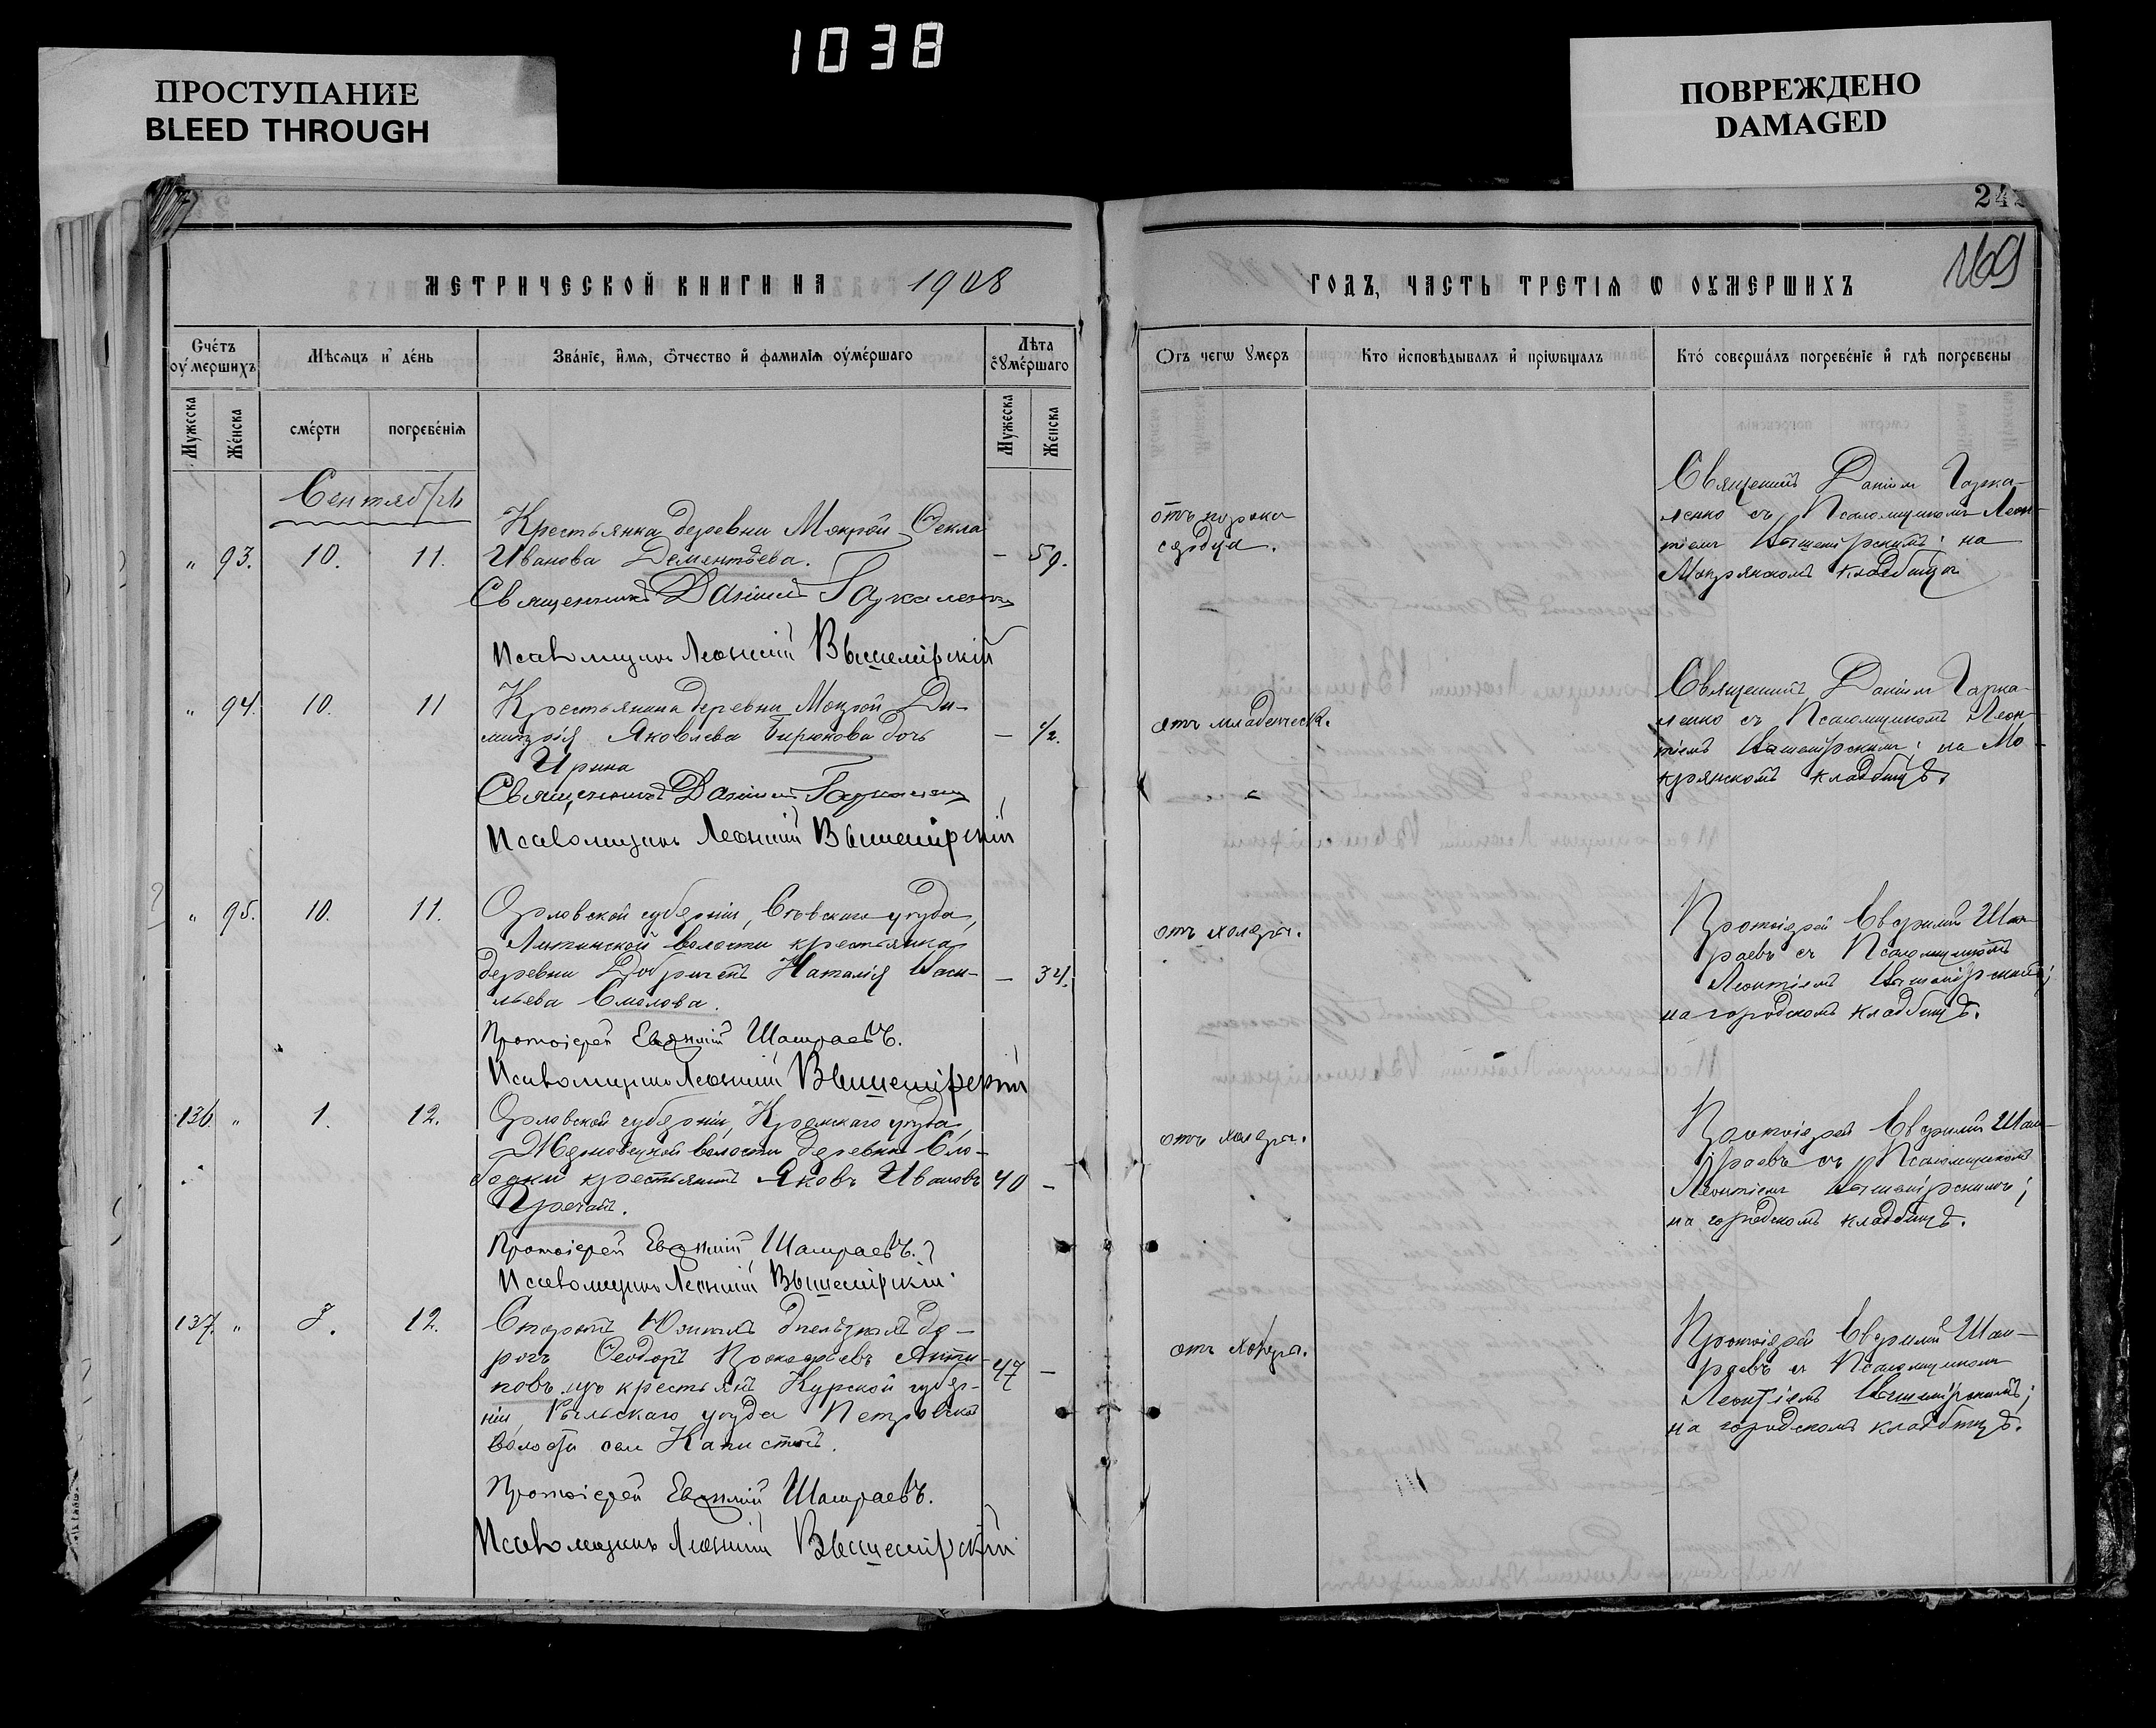 1038
ПРОСТУПАНИЕ
BLEED THROUGH
ПОВРЕЖДЕНО
DAMAGED
242
169
МЕТРИЧЕСКОЙ КНИГИ НА 1908
ГОДЪ, ЧАСТЬ ТРЕТІЯ Ѡ ОУМЕРШИХЪ
Счетъ оумершихъ
Мѣсяцъ и день
Званіе, имя, отчество и фамилія оумершаго
Лѣта оумершаго
Мужеска
Женска
смерти
погребенія
Мужеска
Женска
Отъ чегѡ умеръ
Кто исповѣдывалъ и пріѡбщалъ
Кто совершалъ погребеніе и гдѣ погребены
Сентябрь
„ 93. 10. 11.
Крестьянка деревни Мокрой Ѳекла
Иванова Дементьева.
— 59.
Священникъ Даніилъ Гаркаленко
Псаломщикъ Леонтій Вышемірскій
отъ порока
сердца.
Священникъ Даніилъ Гарка-
ленко съ Псаломщикомъ Леон-
тіемъ Вышемірскимъ; на
Мокрянскомъ кладбищѣ
„ 94. 10. 11
Крестьянина деревни Мокрой Ди-
митрія Яковлева Бирюкова дочь
Ирина
— ½.
Священникъ Даніилъ Гаркаленко
Псаломщикъ Леонтій Вышемірскій
отъ младенческ.
Священникъ Даніилъ Гарка-
ленко съ Псаломщикомъ Леон-
тіемъ Вышемірскимъ; на Мо-
крянскомъ кладбищѣ.
„ 95. 10. 11.
Орловской губерніи, Сѣвскаго уѣзда,
волости крестьянка
деревни Наталія Васи-
льева Смолова.
— 34.
Протоіерей Евѳимій Шашраевъ.
Псаломщикъ Леонтій Вышемірскій
отъ холеры.
Протоіерей Евѳимій Шаш-
раевъ съ Псаломщикомъ
Леонтіемъ Вышемірскимъ;
на городскомъ кладбищѣ.
136. „ 1. 12.
Орловской губерніи, Кромскаго уѣзда,
волости деревни Сло-
бодки крестьянинъ Яковъ Ивановъ
40 —
Протоіерей Евѳимій Шашраевъ.
Псаломщикъ Леонтій Вышемірскій.
отъ холеры.
Протоіерей Евѳимій Шаш-
раевъ съ Псаломщикомъ
Леонтіемъ Вышемірскимъ;
на городскомъ кладбищѣ.
137. „ 12.
Сторожъ Южныхъ желѣзныхъ до-
рогъ Ѳеодоръ Анти-
повъ изъ крестьянъ Курской губер-
ніи, Рыльскаго уѣзда Петровской
волости села Капыстичъ.
47 —
Протоіерей Евѳимій Шашраевъ.
Псаломщикъ Леонтій Вышемірскій
отъ холеры.
Протоіерей Евѳимій Шаш-
раевъ съ Псаломщикомъ
Леонтіемъ Вышемірскимъ;
на городскомъ кладбищѣ.